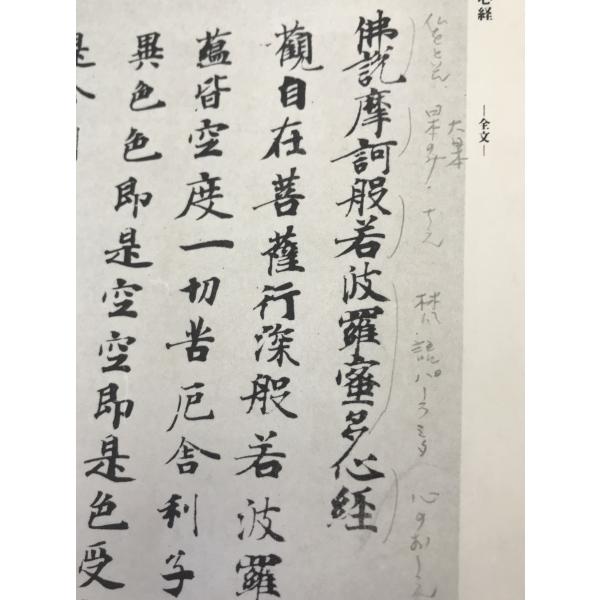 心経
—全文—
ちえ
梵語パーラミタ
心のおしえ
佛説摩訶般若波羅蜜多心経
觀自在菩薩行深般若波羅
蘊皆空度一切苦厄舎利子
異色色即是空空即是色受